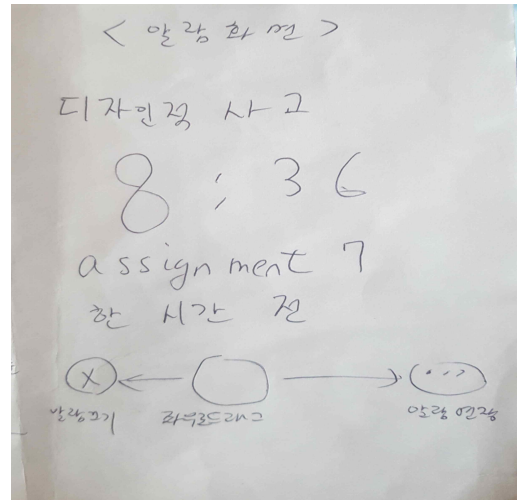 < 알람화면 >
디자인적 사고
8:36
assignment 7
한 시간 전
X ...
알람끄기 좌우로드래그 알람 연장